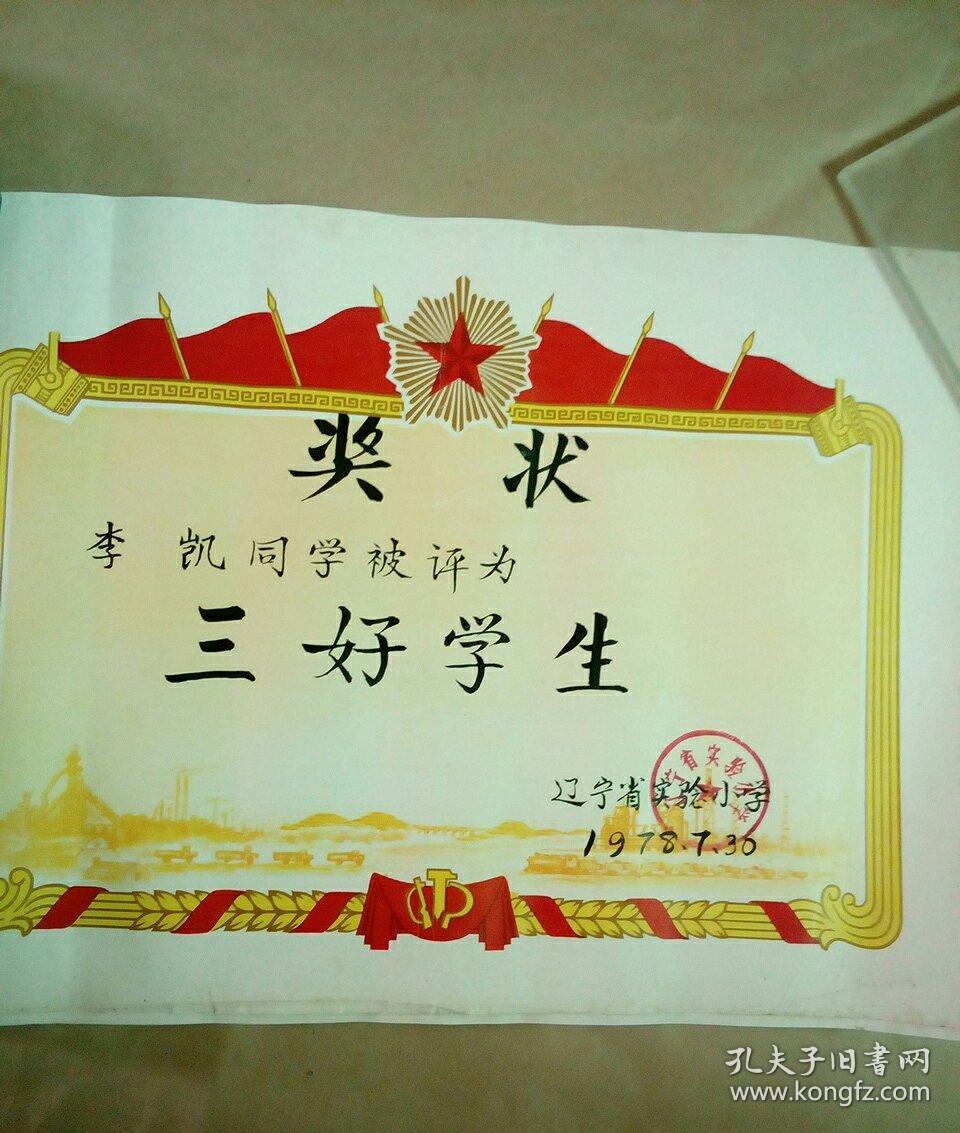 奖 状
李 凯同学被评为
三好学生
辽宁省实验小学
1978.7.30
孔夫子旧书网
www.kongfz.com